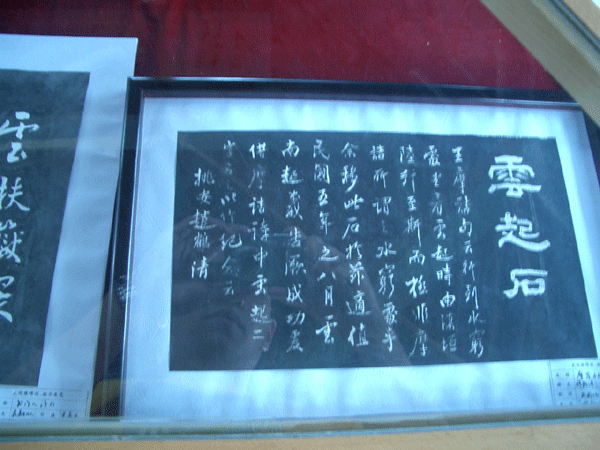 雲起石
王摩詰句云行到水窮
處坐看雲起時由滇垣
陸行至斯而極非摩
詰所謂水窮處乎
余移此石於適值
民國五年之八月雲
南起義告厥成功爰
借摩詰詩中雲起二
字以作紀念云
姚安趙鶴清
雲扶